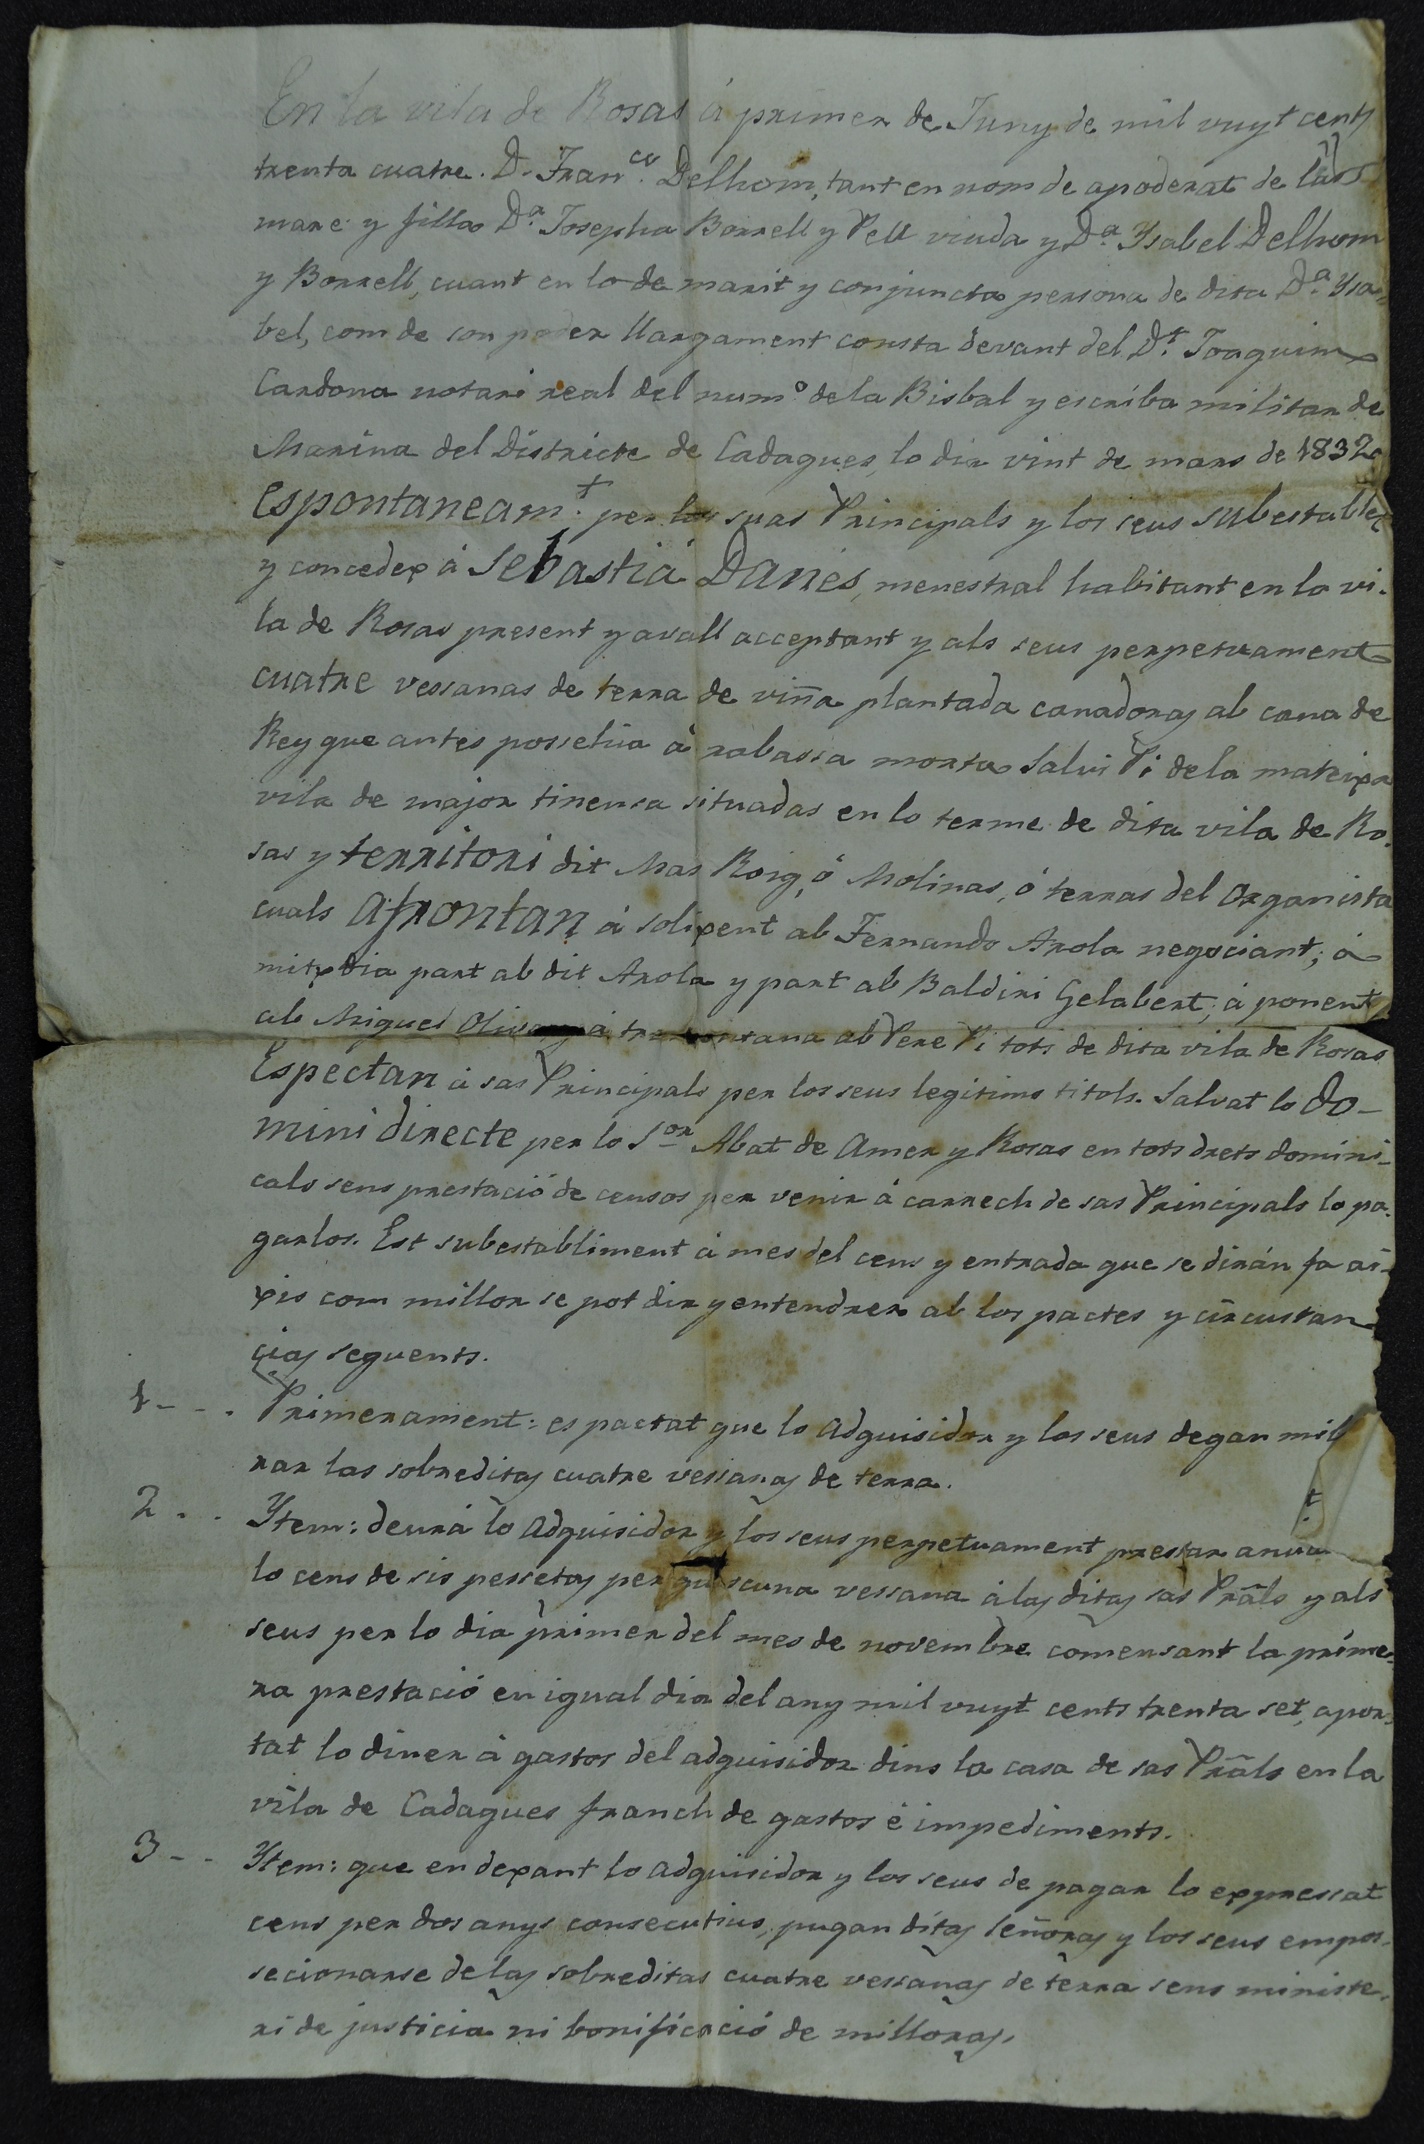 En la vila de Rosas á primer de Juny de mil vuyt cents
trenta cuatre. D. Fran.co Delhom, tant en nom de apoderat de las
mare y filla D.a Josepha Borrell y Pell viuda y D.a Ysabel Delhom
y Borrell, cuant en lo de marit y conjuncta persona de dita D.a Ysa-
bel, com de son poder llargament consta devant del D.t Joaquim
Cardona notari real del num.o de la Bisbal y escriba militar de
Marina del Districte de Cadaques, lo dia vint de mars de 1832
espontaneam.t per las suas Principals y los seus subestableix
y concedex á Sebastiá Danés, menestral habitant en la vi-
la de Rosas present y avall acceptant y als seus perpetuament
cuatre vessanas de terra de viña plantada canadoras ab cana de
Rey que antes possehia á rabassa morta Salvi Pi de la mateixa
vila de major tinensa situadas en lo terme de dita vila de Ro-
sas y territori dit Mas Roig, ó Molinas, ó terras del Organista
cuals afrontan á solixent ab Fernando Arola negociant; á
mitxdia part ab dit Arola y part ab Baldiri Gelabert; á ponent
ab Miquel á tramontana ab Pere Pi tots de dita vila de Rosas
Espectan á sas Principals per los seus legitims titols. Salvat lo do-
mini directe per lo S.or Abat de Amer y Rosas en tots drets domini-
cals sens prestació de censos per venir á carrech de sas Principals lo pa-
garlos. Est subestabliment á mes del cens y entrada que se dirán fa ai-
xis com millor se pot dir y entendrer ab los pactes y circustan-
cias seguents.
1 - - . Primerament: es pactat que lo adquisidor y los seus degan mill
rar las sobreditas cuatre vessanas de terra.
2 . . Ytem: deurá lo adquisidor y los seus perpetuament prestar anua
lo cens de sis pessetas per quiscuna vessana á las ditas sas Prāls y als
seus per lo dia primer del mes de novembre comensant la prime-
ra prestació en igual dia del any mil vuyt cents trenta set, apor-
tat lo diner á gastos del adquisidor dins la casa de sas Prāls en la
vila de Cadaques franch de gastos é impediments.
3 - - Ytem: que en dexant lo adquisidor y los seus de pagar lo expressat
cens per dos anys consecutius, pugan ditas Señoras y los seus empos-
secionarse de las sobreditas cuatre vessanas de terra sens ministe-
ri de justicia ni bonificació de milloras.